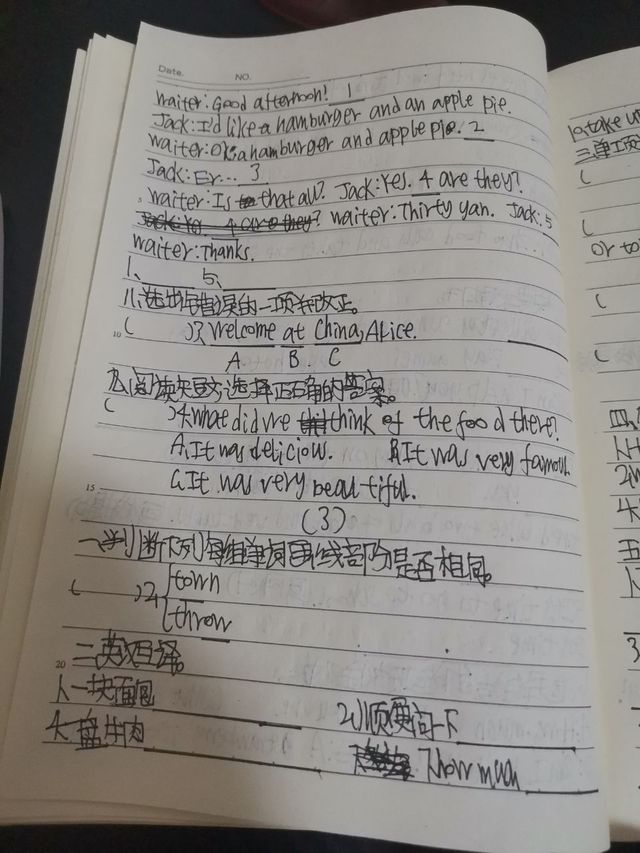 Date. NO.
waiter: Good afternoon! 1
Jack: I'd like a hamburger and an apple pie.
waiter: Ok, a hamburger and apple pie. 2
Jack: Er... 3
waiter: Is that all? Jack: Yes. 4 are they?
Jack: Yes. 4 are they? waiter: Thirty yan. Jack: 5
waiter: Thanks.
1、 5、
八、选出错误的一项并改正。
10 ( )3、Welcome at China, Alice.
A B C
九、阅读短文，选择正确的答案。
( )4. what did we think of the food there?
A. It was delicious. B. It was very famous.
15 C. It was very beautiful.
(3)
一、判断下列每组单词画线部分是否相同。
( )2、 town
throw
20 二、英汉互译。
1、一块面包 2、顺便问一下
4、一盘牛肉 7、how much
10. take
三、单项
(
(
or to
(
(
四、
五、
3